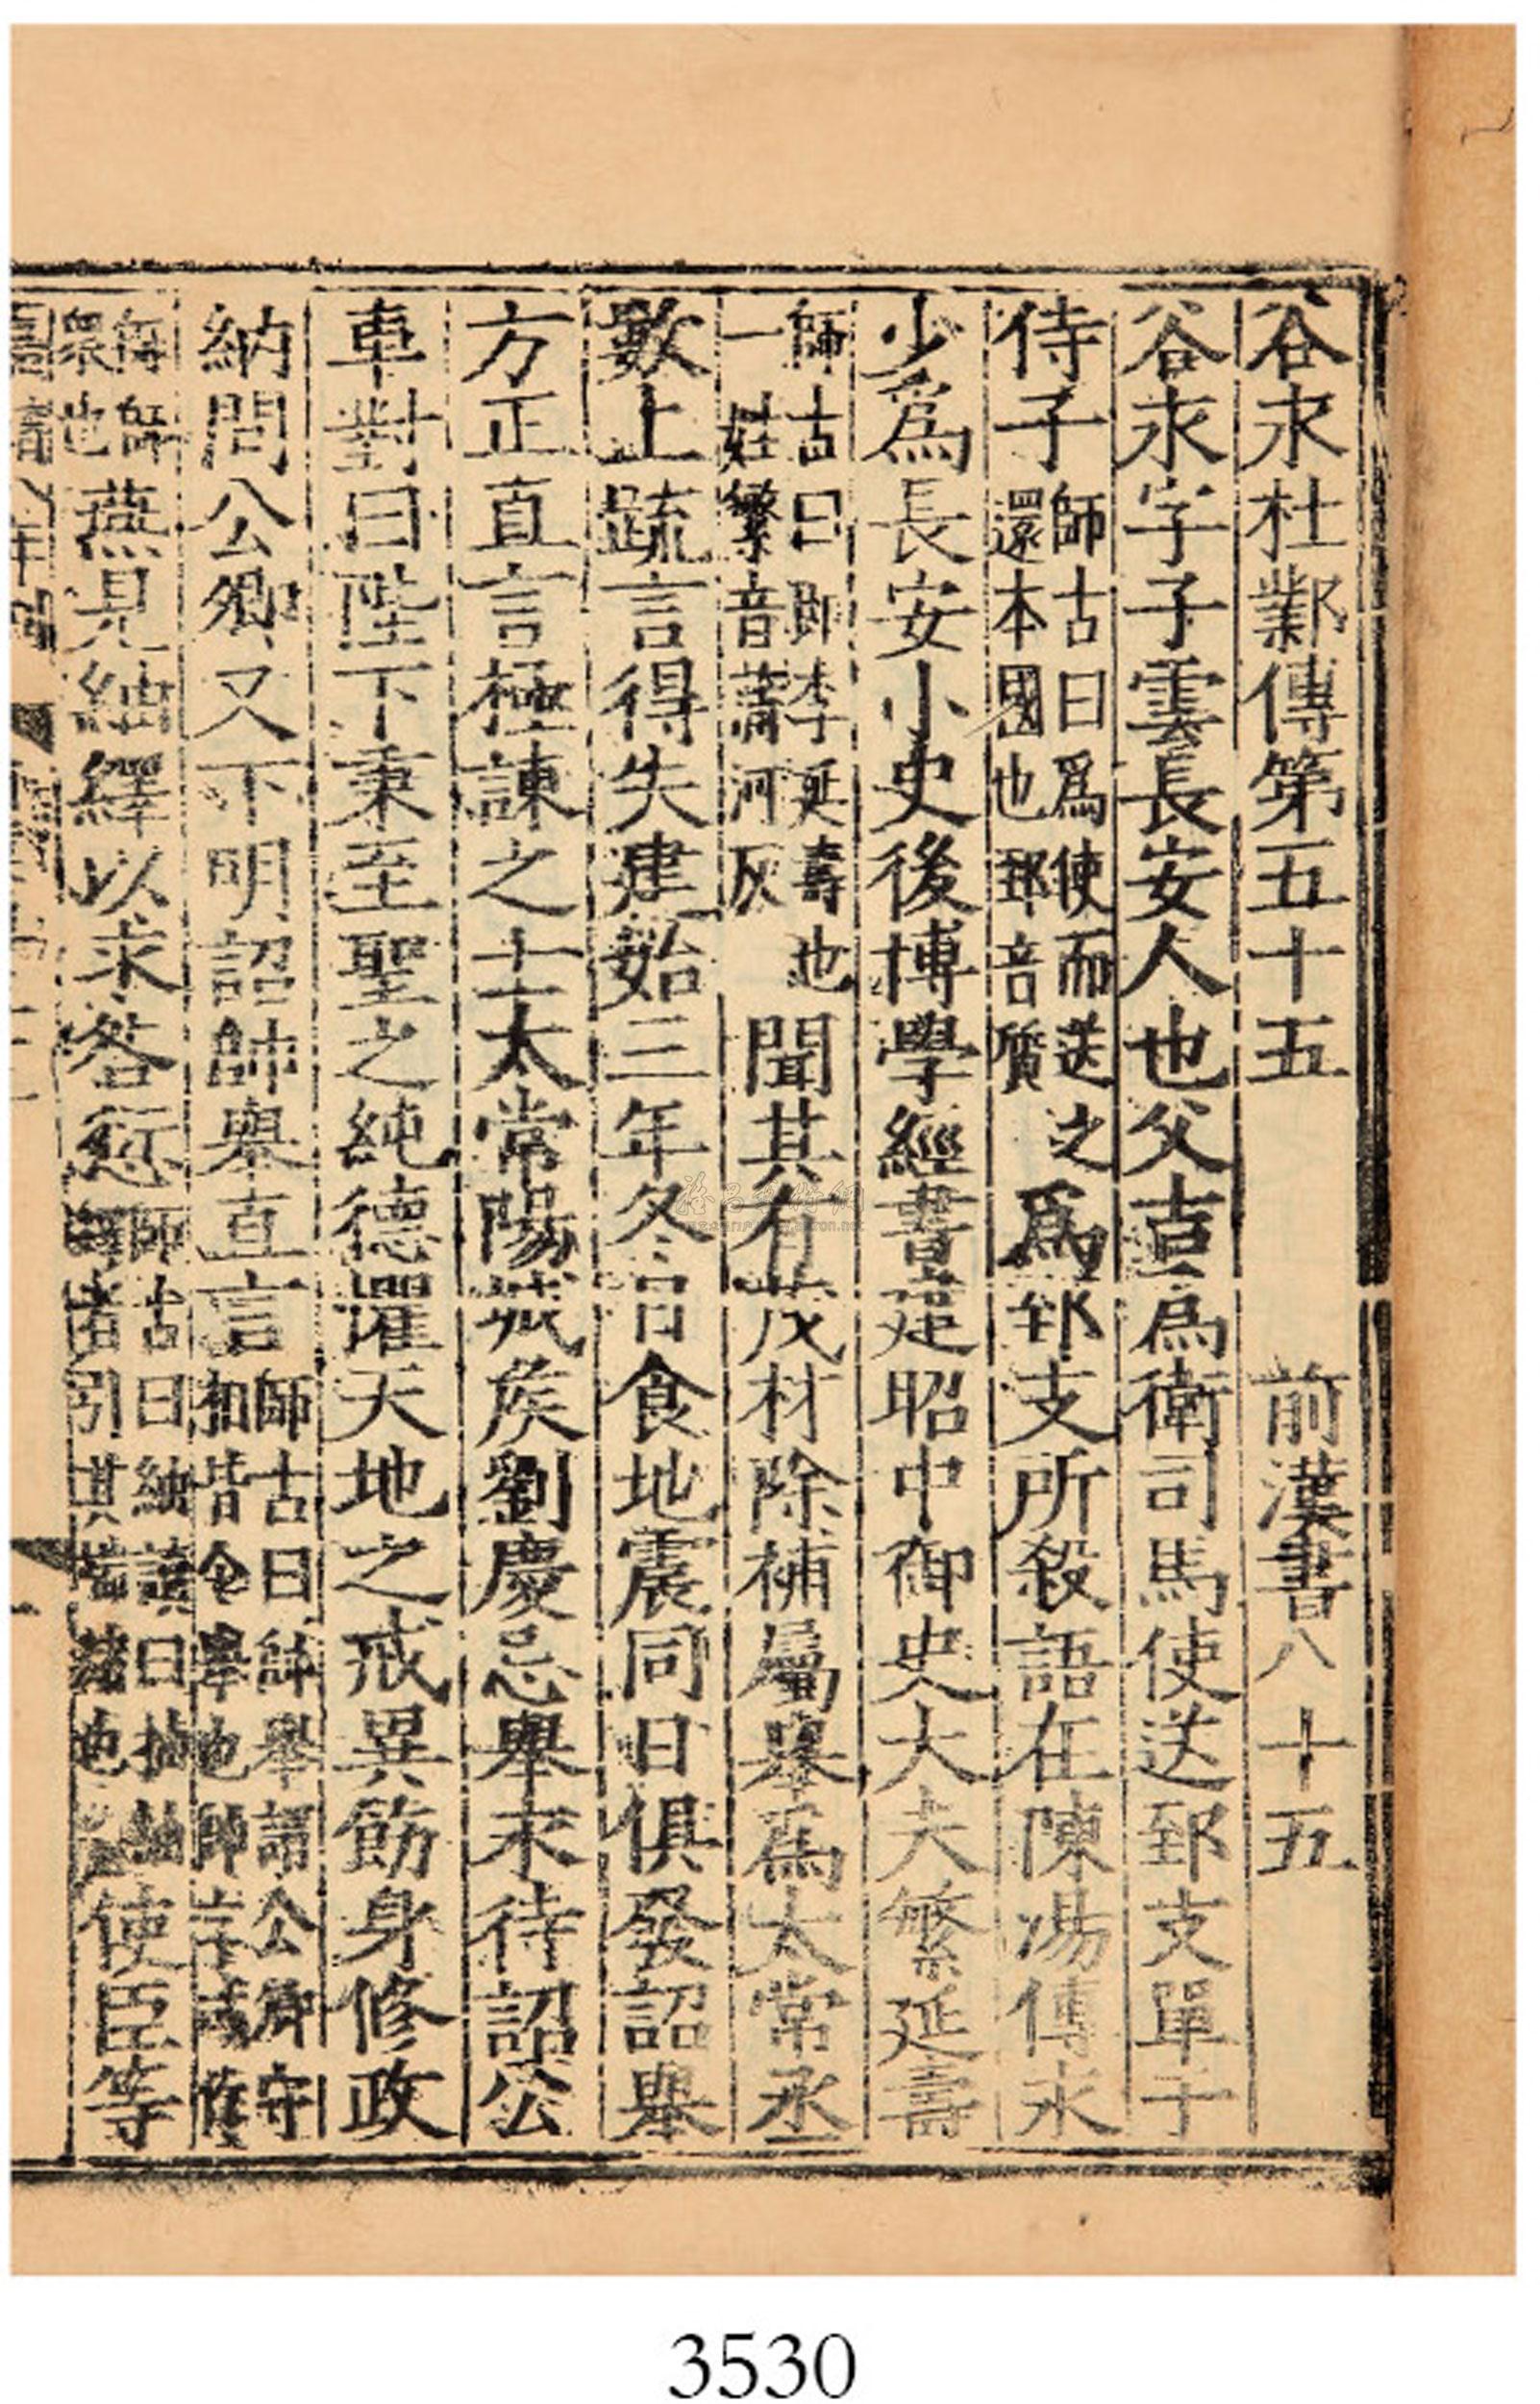 谷永杜鄴傳第五十五 前漢書八十五
谷永字子雲長安人也父吉爲衛司馬使送郅支單于
侍子師古曰爲使而送之還本國也郅音質爲郅支所殺語在陳湯傳永
少爲長安小史後博學經書建昭中御史大夫繁延壽
師古曰即李延壽也一姓繁音蒲河反聞其有茂材除補屬舉爲太常丞
數上疏言得失建始三年冬日食地震同日俱發詔舉
方正直言極諫之士太常陽城侯劉慶忌舉永待詔公
車對曰陛下秉至聖之純德懼天地之戒異飭身修政
納問公卿又下明詔帥舉直言師古曰帥舉謂公卿守相皆令舉也帥言或
每師衆也燕見紬繹以求咎愆師古曰紬讀曰抽紬繹者引其端緒也使臣等
3530